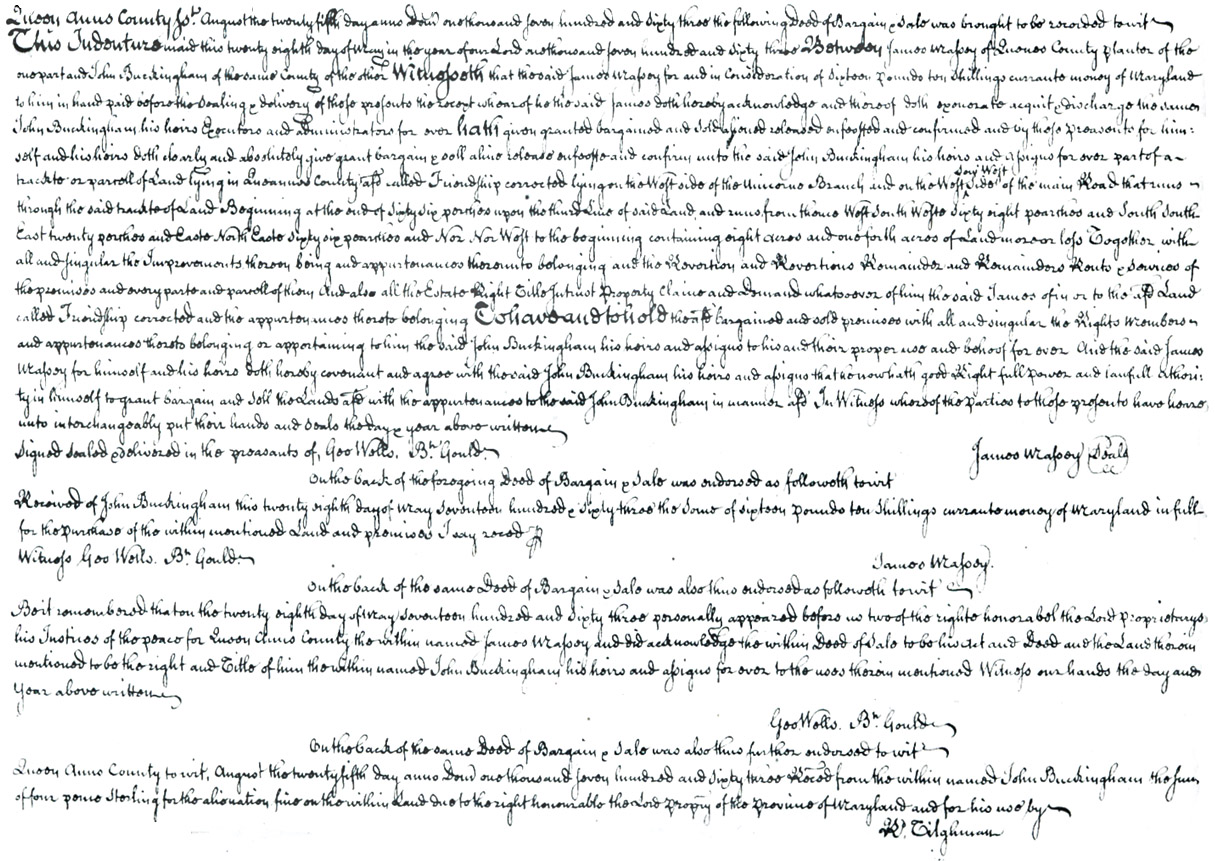 Queen Anns County sst. August the twenty fifth day anno Dom one thousand seven hundred and sixty three the following Deed of Bargain & Sale was brought to be recorded to wit
This Indenture maid this twenty eighth day of May in the year of our Lord one thousand seven hundred and sixty three Between James Massey of Queens County planter of the
one part and John Buckingham of the same County of the other Witnesseth that the said James Massey for and in Consideration of sixteen pounds ten shillings currante money of Maryland
to him in hand paid before the sealing & delivery of these presents the recept whear of he the said James doth hereby acknowledge and thereof doth exonerate acquit & discharge the same
John Buckingham his heirs Executors and administrators for ever hath given granted bargained and sold aliened released enfeofed and confirmed and by these preasents for him-
self and his heirs doth clearly and absolutely give grant bargain & sell aline release enfeofe and confirm unto the said John Buckingham his heirs and assigns for ever part of a
trackte or parcell of Land lying in Queanns County afd. called Friendship corrected lying on the West side of the Unicorns Branch and on the West Side of the main Road that runs
through the said trackte of Land Beginning at the end of sixty six perches upon the third Line of said Land, and runs from thence West South Weste sixty eight pearches and South South
East twenty perches and Easte North Easte sixty six pearches and Nor Nor West to the beginning containing eight acres and one forth acres of Land more or less Together with
all and singular the Improvements thereon being and appurtenances thereunto belonging and the Revertion and Revertions Remainder and Remainders Rents & services of
the premises and every parte and parcell of them And also all the Estate Right Title Intrust Property Claime and Demand whatsoever of him the said James of in or to the afd. Land
called Friendship corrected and the appurtenances thereto belonging To have and to hold the afd. bargained and sold premises with all and singular the Rights Members
and appurtenances thereto belonging or appertaining to him the said John Buckingham his heirs and assigns to his and their proper use and behoof for ever And the said James
Massey for himself and his heirs doth hereby covenant and agree with the said John Buckingham his heirs and assigns that he now hath good Right full power and lawfull Athori-
ty in himself to grant bargain and sell the Lands afd. with the appurtenances to the said John Buckingham in manner afd. In Witness whereof the parties to these presents have heare
unto interchangeably put their hands and seals the day & year above written
Signed Sealed & delivered in the preasants of, Geo Wells. Bn. Gould. James Massey Seal
On the back of the foregoing Deed of Bargain & Sale was endorsed as followeth to wit
Received of John Buckingham this twenty eighth day of May seventeen hundred & sixty three the some of sixteen pounds ten shillings currante money of Maryland in full
for the purchase of the within mentioned Land and premises I say reced
Witness Geo Wells. Bn. Gould. James Massey.
On the back of the same Deed of Bargain & Sale was also thus endorsed as followeth to wit
Be it remembered that on the twenty eighth day of May seventeen hundred and sixty three personally appeared before us two of the righte honorabel the Lord Proprietarys
his Justices of the peace for Queen Anns County the within named James Massey and did acknowledge the within Deed of Sale to be his Act and Deed and the Land therein
mentioned to be the right and Title of him the within named John Buckingham his heirs and assigns for ever to the uses therein mentioned Witness our hands the day and
Year above written
Geo Wells. Bn. Gould
On the back of the same Deed of Bargain & Sale was also thus further endorsed to wit
Queen Anns County to wit, August the twenty fifth day anno Dom one thousand seven hundred and sixty three Reced from the within named John Buckingham the sum
of four pence Sterling for the alienation fine on the within Land due to the right honourable the Lord Propry of the Province of Maryland and for his use by
W. Tilghman